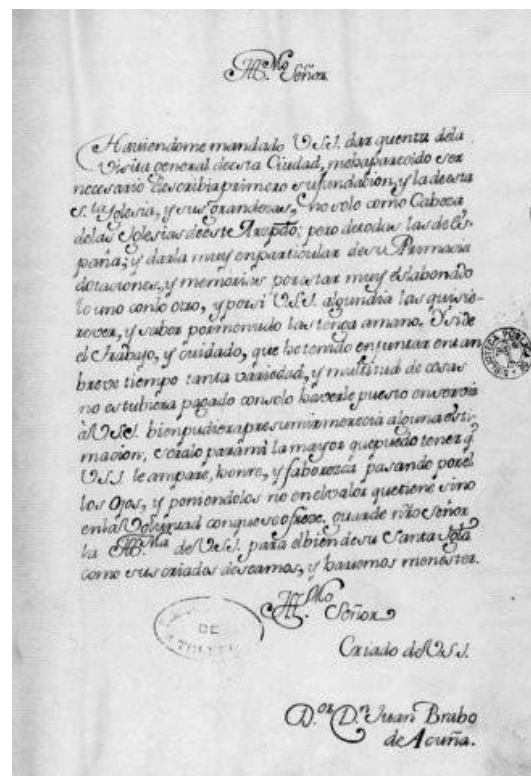 Ill.^mo Señor
Haviendome mandado V.S.I. dar quenta dela
Visita general deesta Ciudad, mehaparecido ser
necesario describir primero su fundacion, y la deesta
S.^ta Yglesia, y sus grandezas, no solo como Cabeza
delas Yglesias deeste Arzpdo; pero detodas las de Es-
paña; y darla muy enparticular desu Primacia
dotaciones, y memorias por estar muy eslabonado
lo uno conlo otro, y porsi V.S.I. algundia las quisie-
rever, y saber pormenudo las tenga amano. Y si de
el trabajo, y cuidado, que he tenido enjuntar entan
breve tiempo tanta variedad, y multitud de cosas
no estubiera pagado consolo haverle puesto enservicio
à V.S.I. bienpudiera presumir merecia alguna esti-
macion, y seralo parami la mayor quepuedo tener q.^e
V.S.I. le ampare, honre, y faborezca pasando porel
los Ojos, y poniendolos no enelvalor quetiene sino
enlaVoluntad conqueseofreze, guarde nřo Señor
la Ill.^ma de V.S.I. para elbien desu Santa Igla
como sus criados deseamos, y havemos menester.
Ill.^mo Señor
Criado de V.S.I.
D.^or D.^n Juan Brabo
de Acuña.
DE